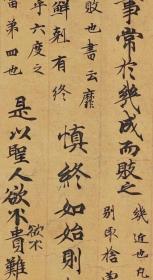 事常於幾成而敗之
幾近也凡
別取捨
敗也書云靡
鮮剋有終
慎終如始則
六度之
第四也
是以聖人欲不欲不貴難